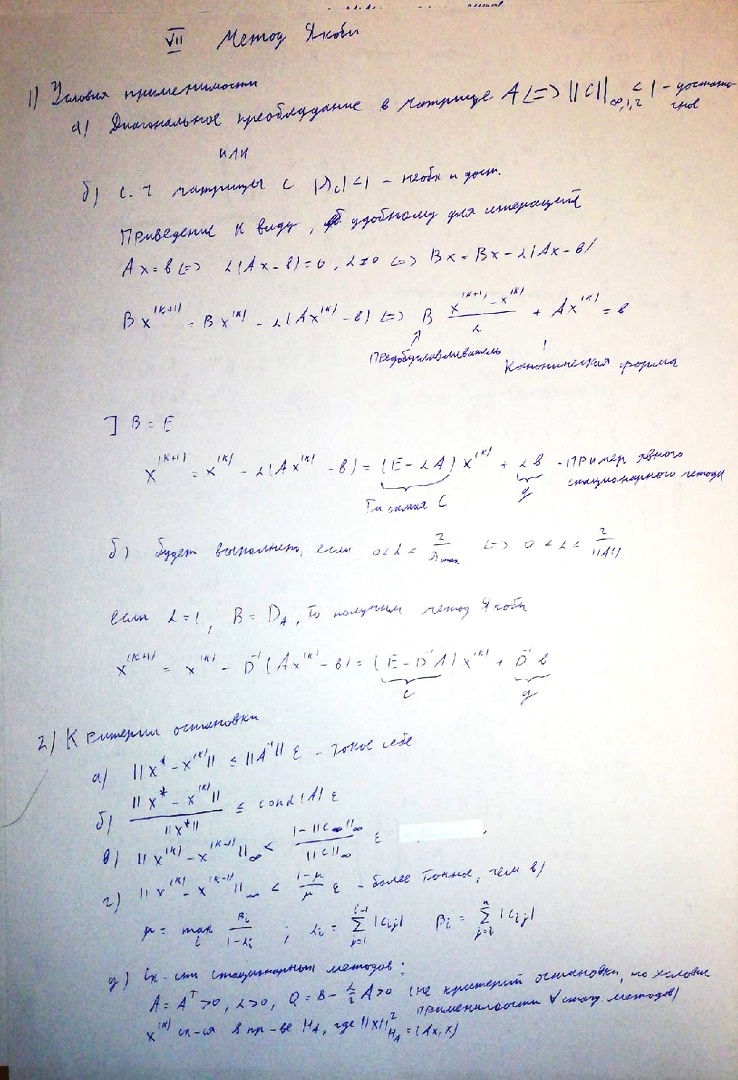 VII Метод Якоби
1) Условия применимости
а) Диагональное преобладание в матрице A <=> ||C||∞,1,2 < 1 - достаточное
или
б) с.ч матрицы C |λc|<1 - необх и дост.
Приведение к виду, удобному для итераций
Ax=b <=> α(Ax-b)=0, α≠0 <=> Bx=Bx-α(Ax-b)
Bx^(k+1) = Bx^(k) - α(Ax^(k) - b) <=> B (x^(k+1) - x^(k))/α + Ax^(k) = b
Предобуславливатель Каноническая форма
] B = E
x^(k+1) = x^(k) - α(Ax^(k) - b) = (E-αA) x^(k) + αb - Пример явного стационарного метода
Та самая C g
б) будет выполнено, если 0<α< 2/λmax <=> 0<α< 2/||A||
если α=1, B=D_A, то получим метод Якоби
x^(k+1) = x^(k) - D^-1(Ax^(k) - b) = (E-D^-1A) x^(k) + D^-1 b
C g
2) Критерии остановки
а) ||x* - x^(k)|| ≤ ||A^-1|| ε - такое себе
б) ||x* - x^(k)|| / ||x*|| ≤ cond(A) ε
в) ||x^(k) - x^(k-1)||∞ < (1-||C||∞)/||C||∞ ε
г) ||x^(k) - x^(k-1)||∞ < (1-μ)/μ ε - более точная, чем в)
μ = max_i βi/(1-αi) ; αi = Σ_{j=1}^{i-1} |cij| βi = Σ_{j=i}^{n} |cij|
д) Сх-сти стационарных методов:
A=A^T>0, α>0, Q=B-α/2 A>0 (не критерий остановки, но условие применимости ∀ стац. методов)
x^(k) сх-ся в пр-ве H_A, где ||x||²_{H_A} = (Ax,x)